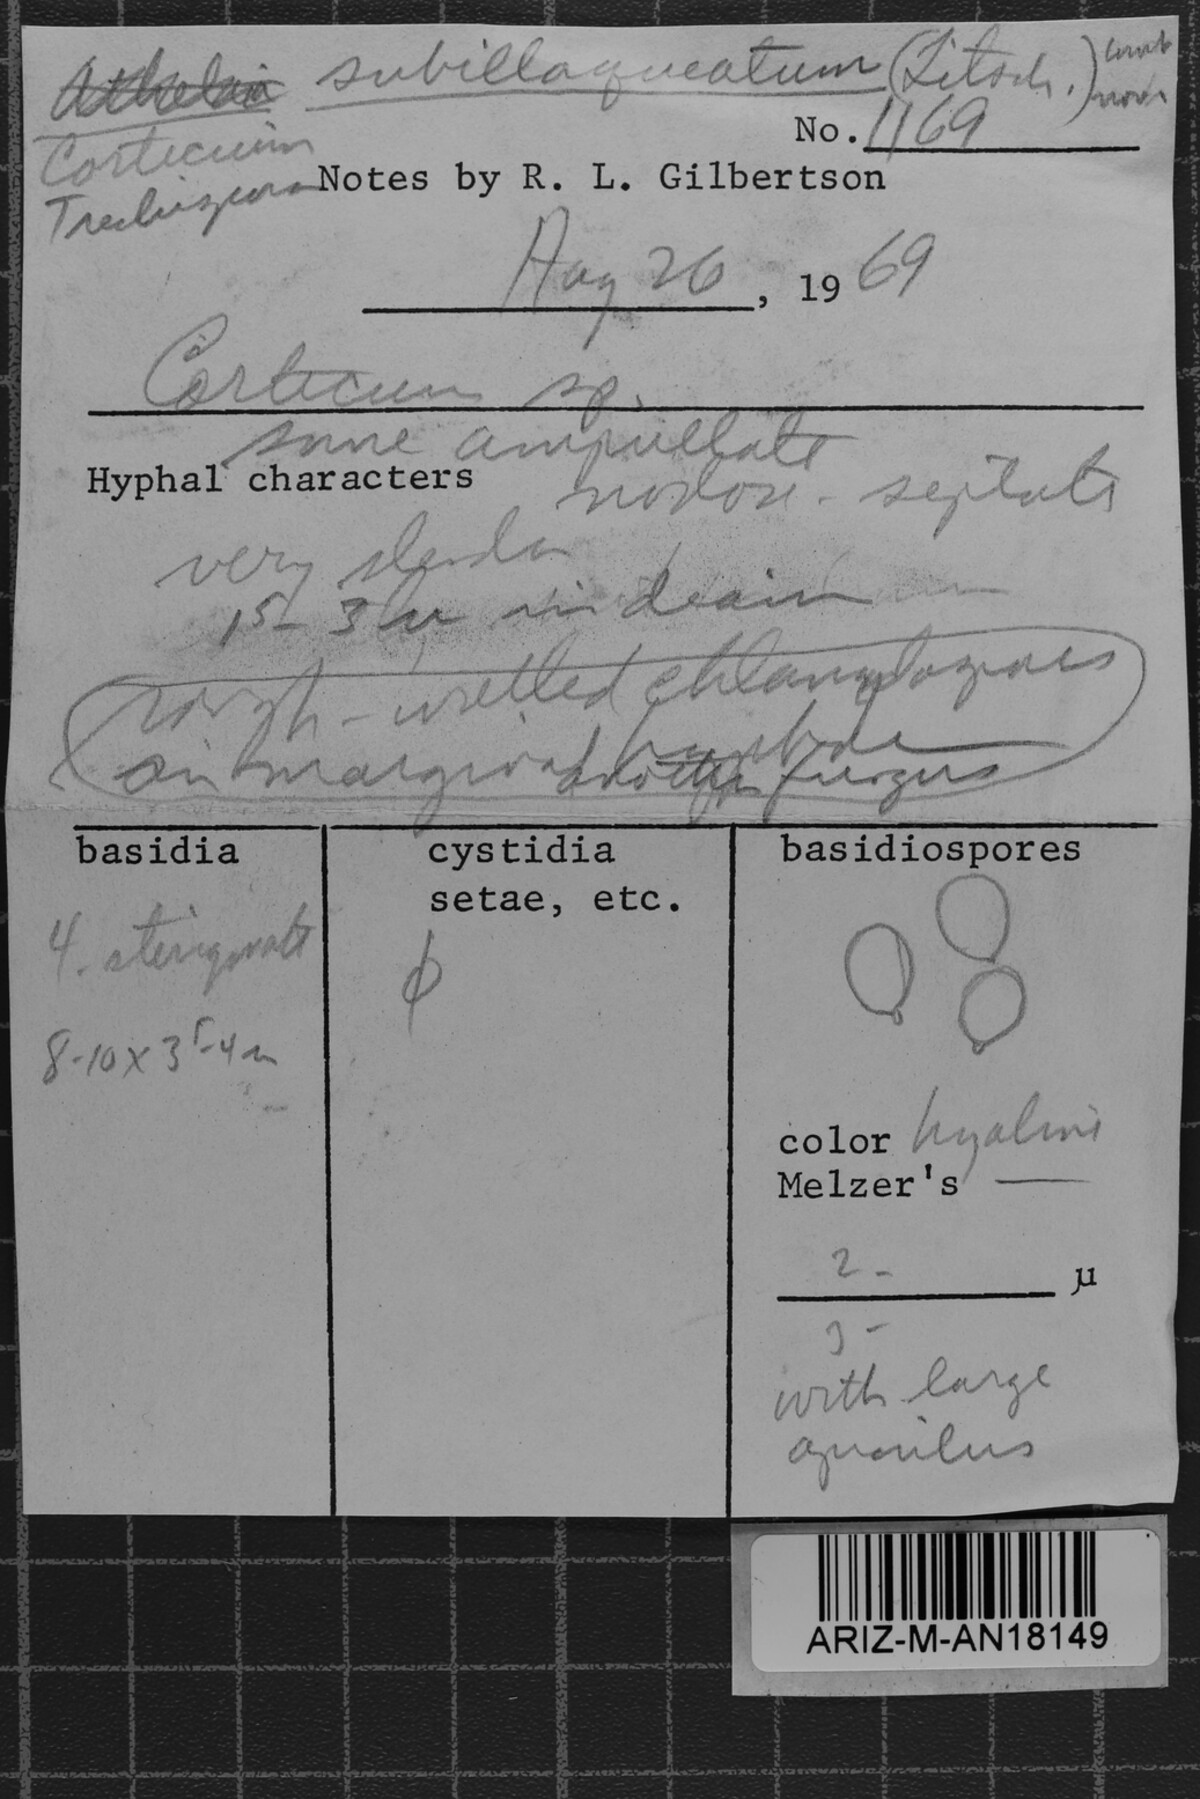 Athelia subillaqueatum (Litsch.) comb nov
No. 1169
Corticium
Trechispora
Notes by R. L. Gilbertson
Aug 26, 19 69
Corticium sp.
some ampullate
Hyphal characters
nodose-septate
very slender
15-3 µ in diam
rough-walled chlamydospores
on marginal hyphae
another fungus
basidia
4-sterigmate
8-10 x 35-4 µ
cystidia
setae, etc.
φ
basidiospores
color hyaline
Melzer's —
2- µ
3-
with large
apiculus
ARIZ-M-AN18149